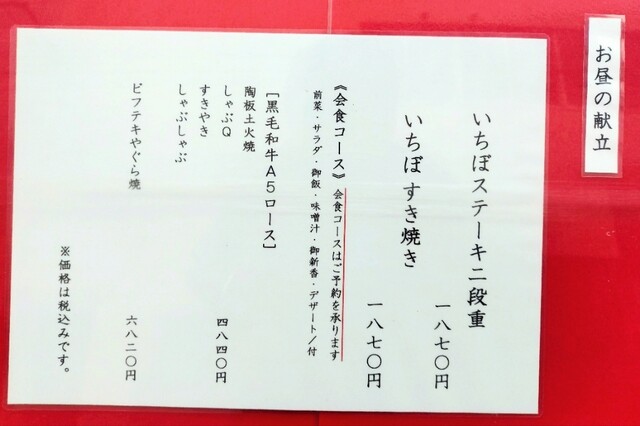 お昼の献立
いちぼステーキ二段重
一八七〇円
いちぼすき焼き
一八七〇円
《会食コース》会食コースはご予約を承ります
前菜・サラダ・御飯・味噌汁・御新香・デザート/付
[黒毛和牛A5ロース]
陶板土火焼
しゃぶQ
四八四〇円
すきやき
しゃぶしゃぶ
ビフテキやぐら焼
六八二〇円
※価格は税込みです。